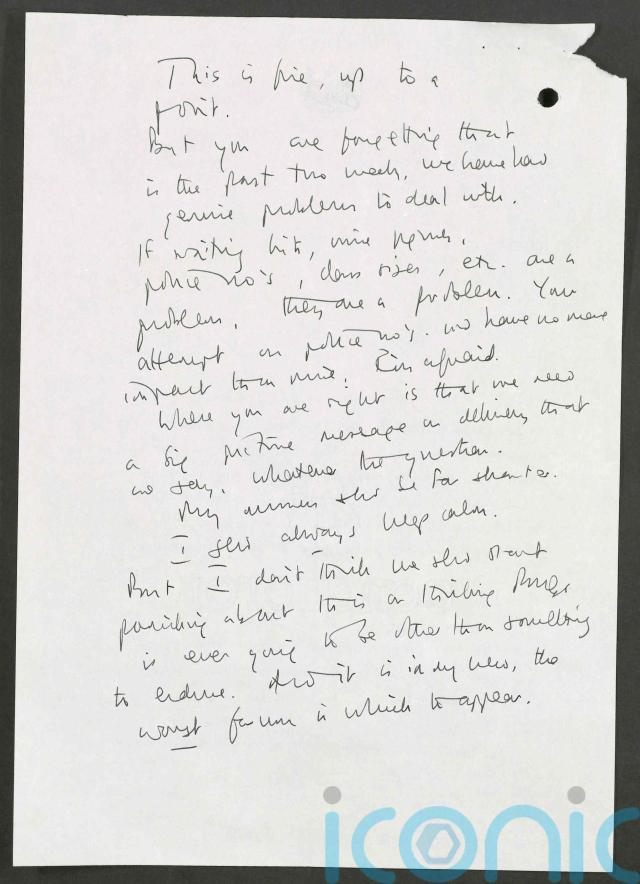 This is fine, up to a
point.
But you are forgetting that
in the past two weeks, we have had
genuine problems to deal with.
If waiting lists, nurse
police no's, class sizes, etc. are a
problem, they are a problem. Your
attempt on police no's. wd have no more
impact than mine, I'm afraid.
Where you are right is that we need
a big picture message on delivery that
we say, whatever the question.
My answers shd be far shorter.
I shd always keep calm.
But I don't think we shd start
panicking about this or thinking PMQs
is ever going to be other than something
to endure. And it is in my view, the
worst forum in which to appear.
iconic